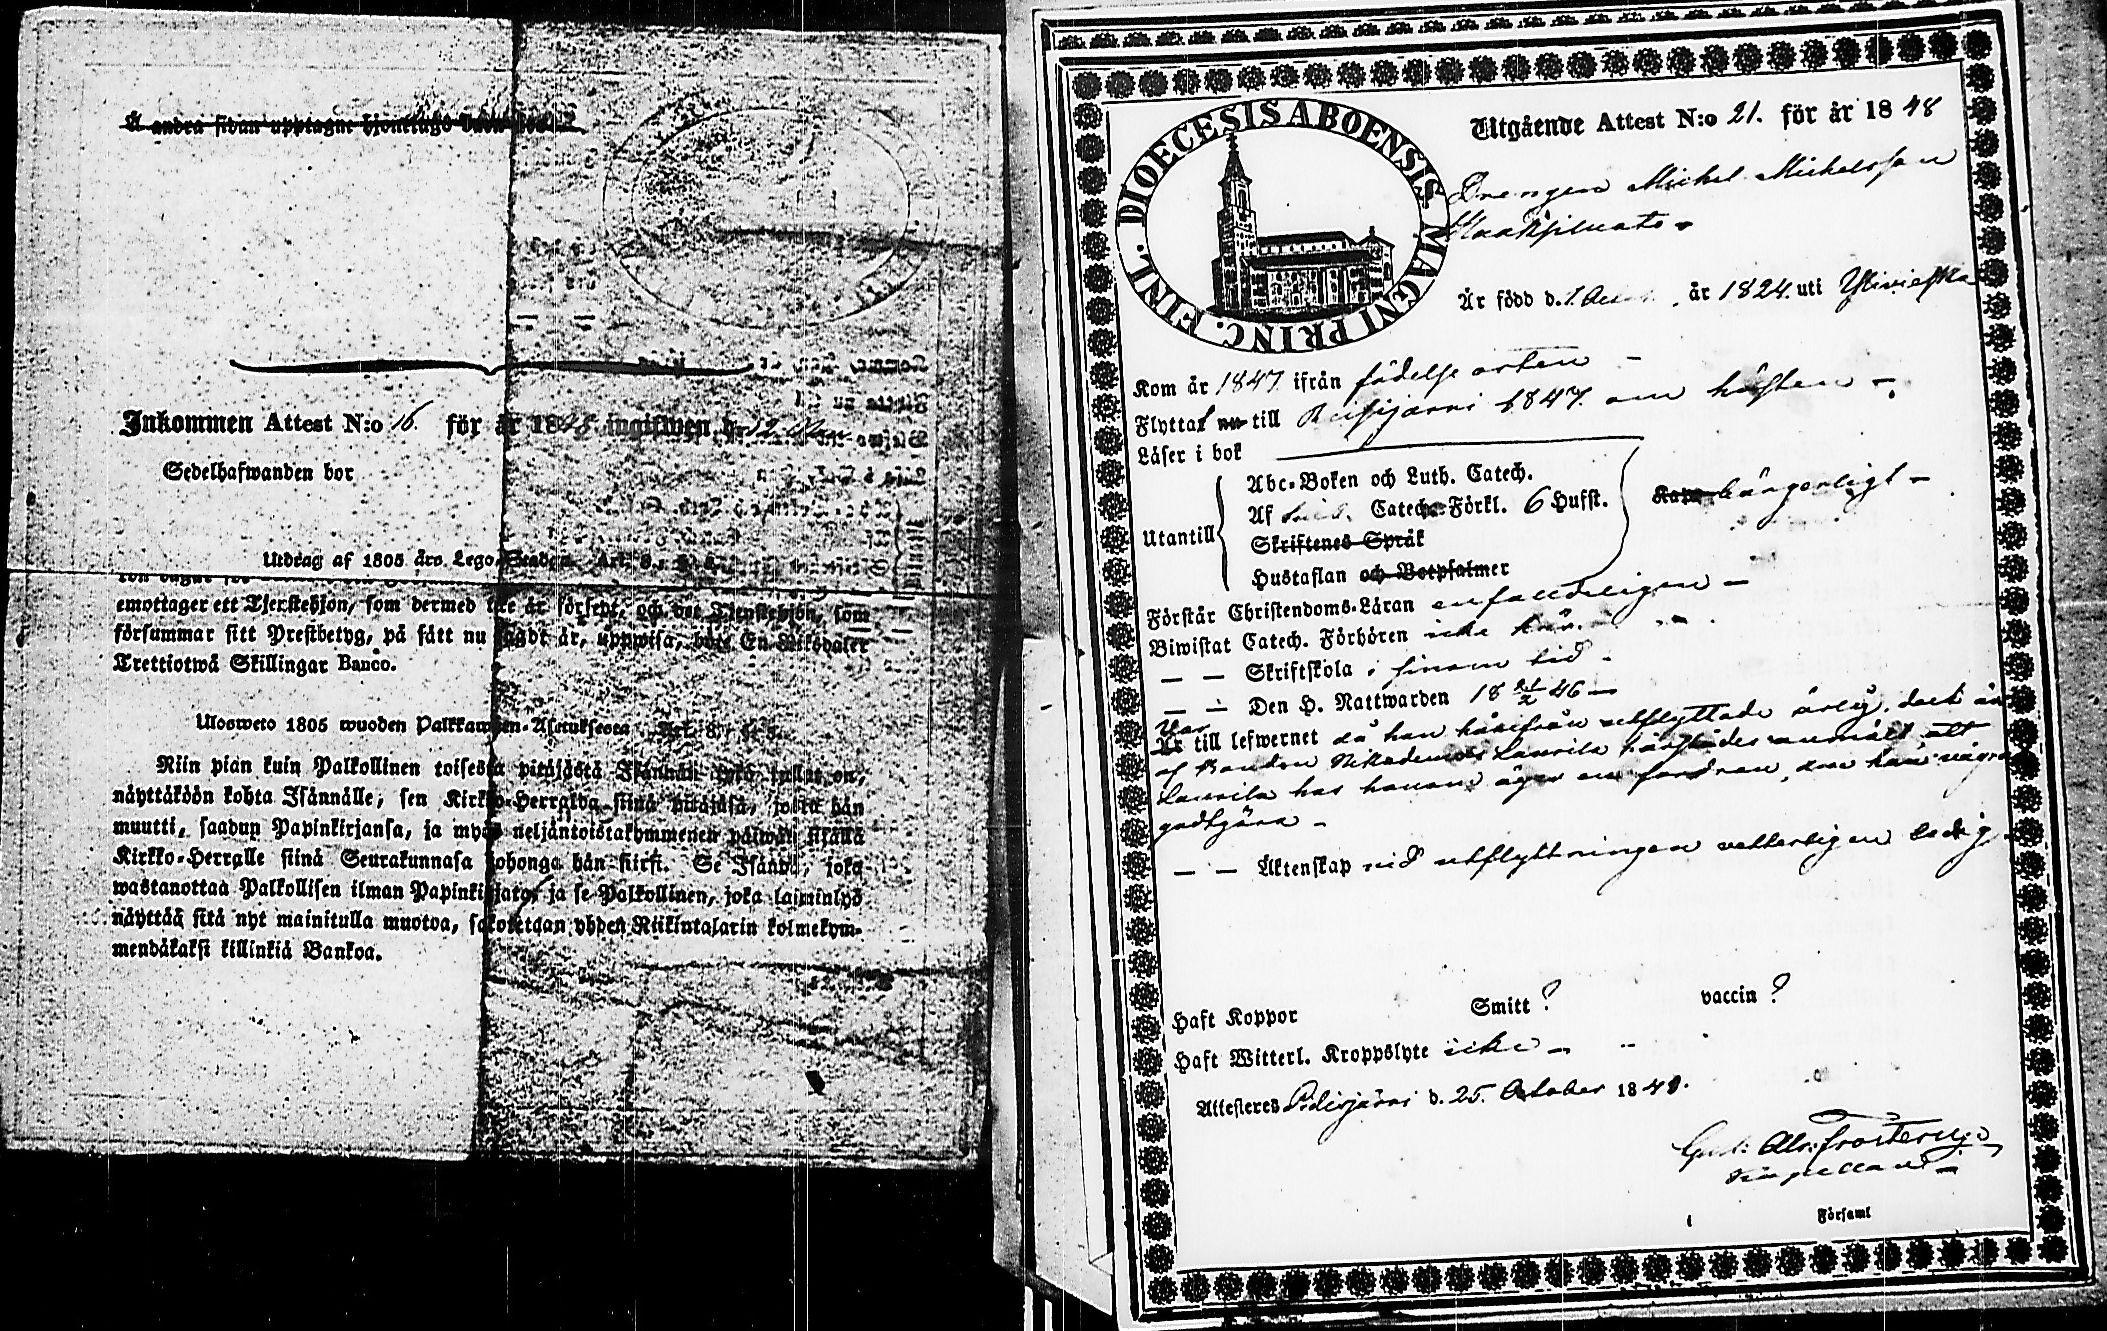 Å andra sidan upptagne
Inkommen Attest N:o 16. för år 1848 ingifwen d. 12
Sedelhafwanden bor
Utdrag af 1805 års Lego-Stadga. Art. 8.
emottager ett Tjenstehjon, som dermed icke är försedt, och det Tjenstehjon, som
försummar sitt Prestbetyg, på sätt nu sagdt är, uppwisa, böte En Riksdaler
Trettiotwå Skillingar Banco.
Ulosweto 1805 wuoden Palkkawäen-Asetuksesta. Art. 8.
Niin pian kuin Palkollinen toisesta pitäjästä Isännän tykö tullut on,
näyttäköön kohta Isännälle, sen Kirkko-Herralda siinä pitäjäsä, josta hän
muutti, saadun Papinkirjansa, ja myös neljäntoistakymmenen päiwän sisällä
Kirkko-Herralle siinä Seurakunnasa johonga hän siirsi. Se Isändä, joka
wastanottaa Palkollisen ilman Papinkirjato, ja se Palkollinen, joka laiminlyö
näyttää sitä nyt mainitulla muotoa, sakotetaan yhden Riikintalarin kolmekym-
mendäkaksi killinkiä Bankoa.
DIOECESIS ABOENSIS MAGNI PRINC. FINL.
Utgående Attest N:o 21. för år 1848
Drengen Michel Michelsson
Är född d. 1 år 1824. uti Ylivieska
Kom år 1847. ifrån födelse orten –
Flyttat nu till Reisjärvi 1847. om hösten –
Läser i bok
Utantill
Abc-Boken och Luth. Catech.
Af Catech. Förkl. 6 Hufst.
Skriftenes Språk
Hustaflan och Botpsalmer
bängerligt –
Förstår Christendoms-Läran enfaldeligen –
Biwistat Catech. Förhören icke här.
— — Skriftskola i sinom tid –
— — Den H. Nattwarden 18 46 –
Var
Är till lefwernet då han härifrån utflyttade ärlig, dock är
af Bonden Nikodemus Laurila härstädes anmält att
Laurila hos honom äger en fordran, den han vägrar
godtgöra –
— — Äktenskap vid utflyttningen vetterligen ledig.
Haft Koppor Smitt ? vaccin ?
Haft Witterl. Kroppslyte icke –
Attesteras Pidisjärvi d. 25. October 1848.
Kapellan –
Församl